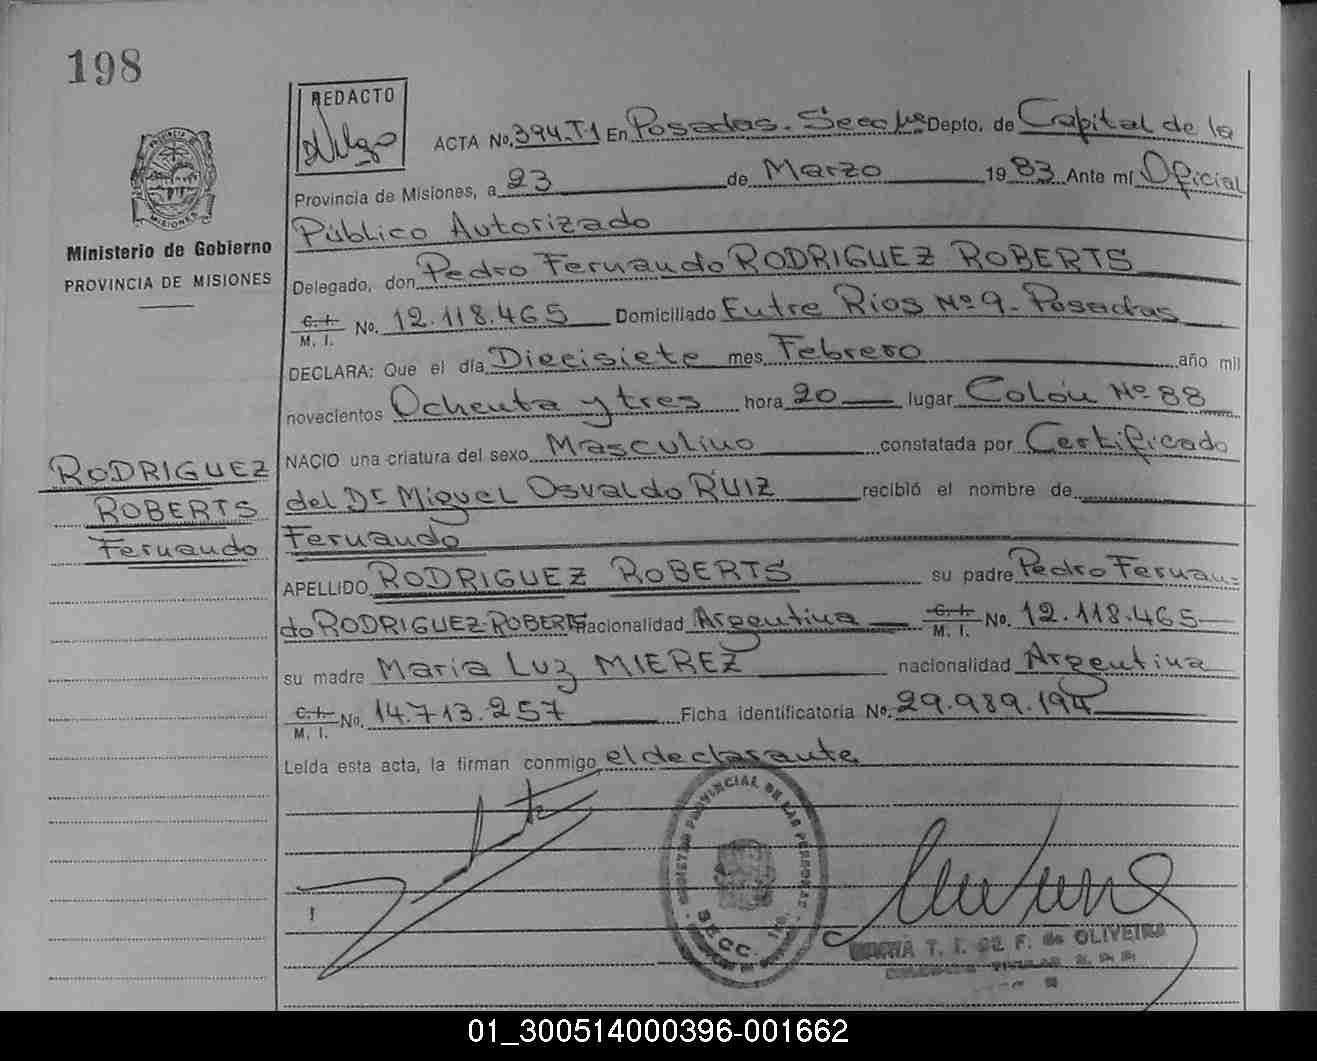 198
REDACTO
ACTA No. 394.T1 En Posadas. Secc 1ra Depto. de Capital de la
Provincia de Misiones, a 23 de Marzo 1983 Ante mí Oficial
Público Autorizado
PROVINCIA DE
MISIONES
Ministerio de Gobierno
PROVINCIA DE MISIONES
Delegado, don Pedro Fernando RODRIGUEZ ROBERTS
C. I.
M. I. No. 12.118.465 Domiciliado Entre Ríos Nº 9- Posadas
DECLARA: Que el día Diecisiete mes Febrero año mil
novecientos Ochenta y tres hora 20 lugar Colón Nº 88
NACIO una criatura del sexo Masculino constatada por Certificado
del Dr Miguel Osvaldo RUIZ recibió el nombre de
Fernando
RODRIGUEZ
ROBERTS
Fernando
APELLIDO RODRIGUEZ ROBERTS su padre Pedro Fernan-
do RODRIGUEZ-ROBERTS nacionalidad Argentina C. I.
M. I. No. 12.118.465
su madre María Luz MIEREZ nacionalidad Argentina
C. I.
M. I. No. 14.713.257 Ficha identificatoria No. 29.989.194
Leída esta acta, la firman conmigo el declarante
PROVINCIAL DE LAS PERSONAS
SECC. 1ra.
T. I. F. de OLIVEIRA
01_300514000396-001662